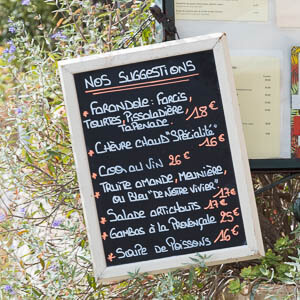 Nos Suggestions
* Farandole: Farcis,
Tourtes, Pissoladière,
Tapenade. 18€
* Chèvre chaud "Spécialité" 16€
* Coq au vin 26€
* Truite amande, Meunière,
ou Bleu "de notre vivier" 17€
* Salade artichauts 17€
* Gambas à la Provençale 25€
* Soupe de Poissons 16€